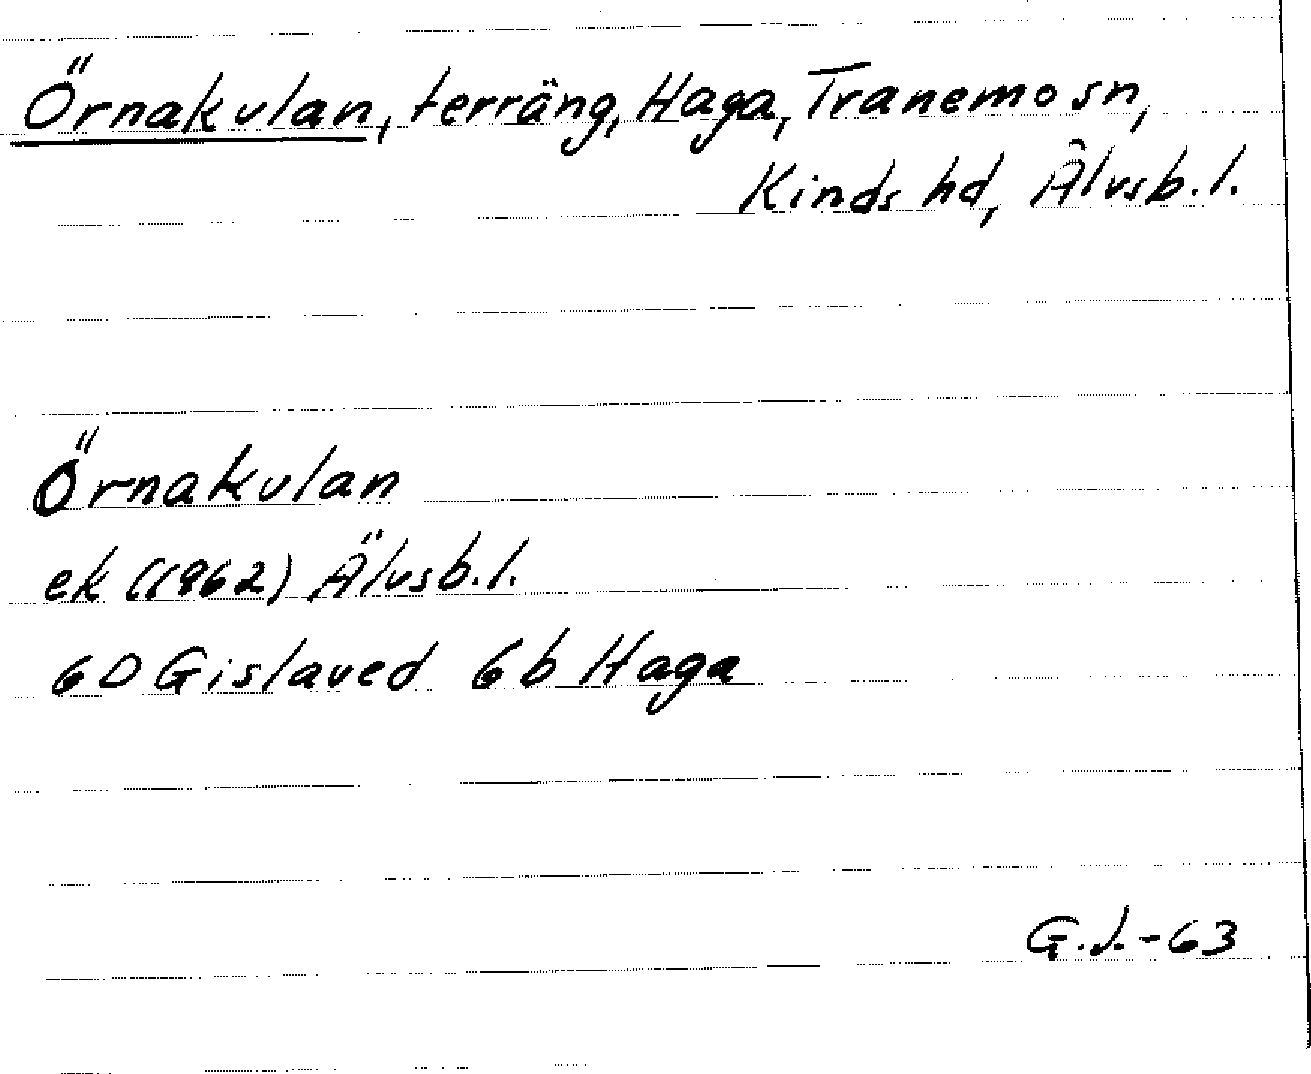 Örnakulan, terräng, Haga, Tranemo sn,
Kinds hd, Älvsb.l.
Örnakulan
ek (1962) Älvsb.l.
6D Gislaved 6b Haga
G.J.-63